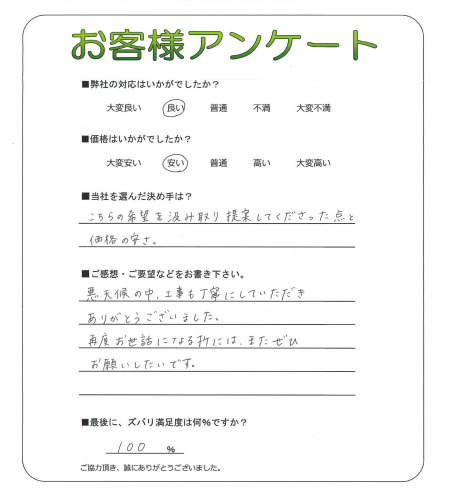 お客様アンケート
■弊社の対応はいかがでしたか？
大変良い 良い 普通 不満 大変不満
■価格はいかがでしたか？
大変安い 安い 普通 高い 大変高い
■当社を選んだ決め手は？
こちらの希望を汲み取り提案してくださった点と
価格の安さ。
■ご感想・ご要望などをお書き下さい。
悪天候の中、工事も丁寧にしていただき
ありがとうございました。
再度お世話になる折には、またぜひ
お願いしたいです。
■最後に、ズバリ満足度は何％ですか？
100 ％
ご協力頂き、誠にありがとうございました。